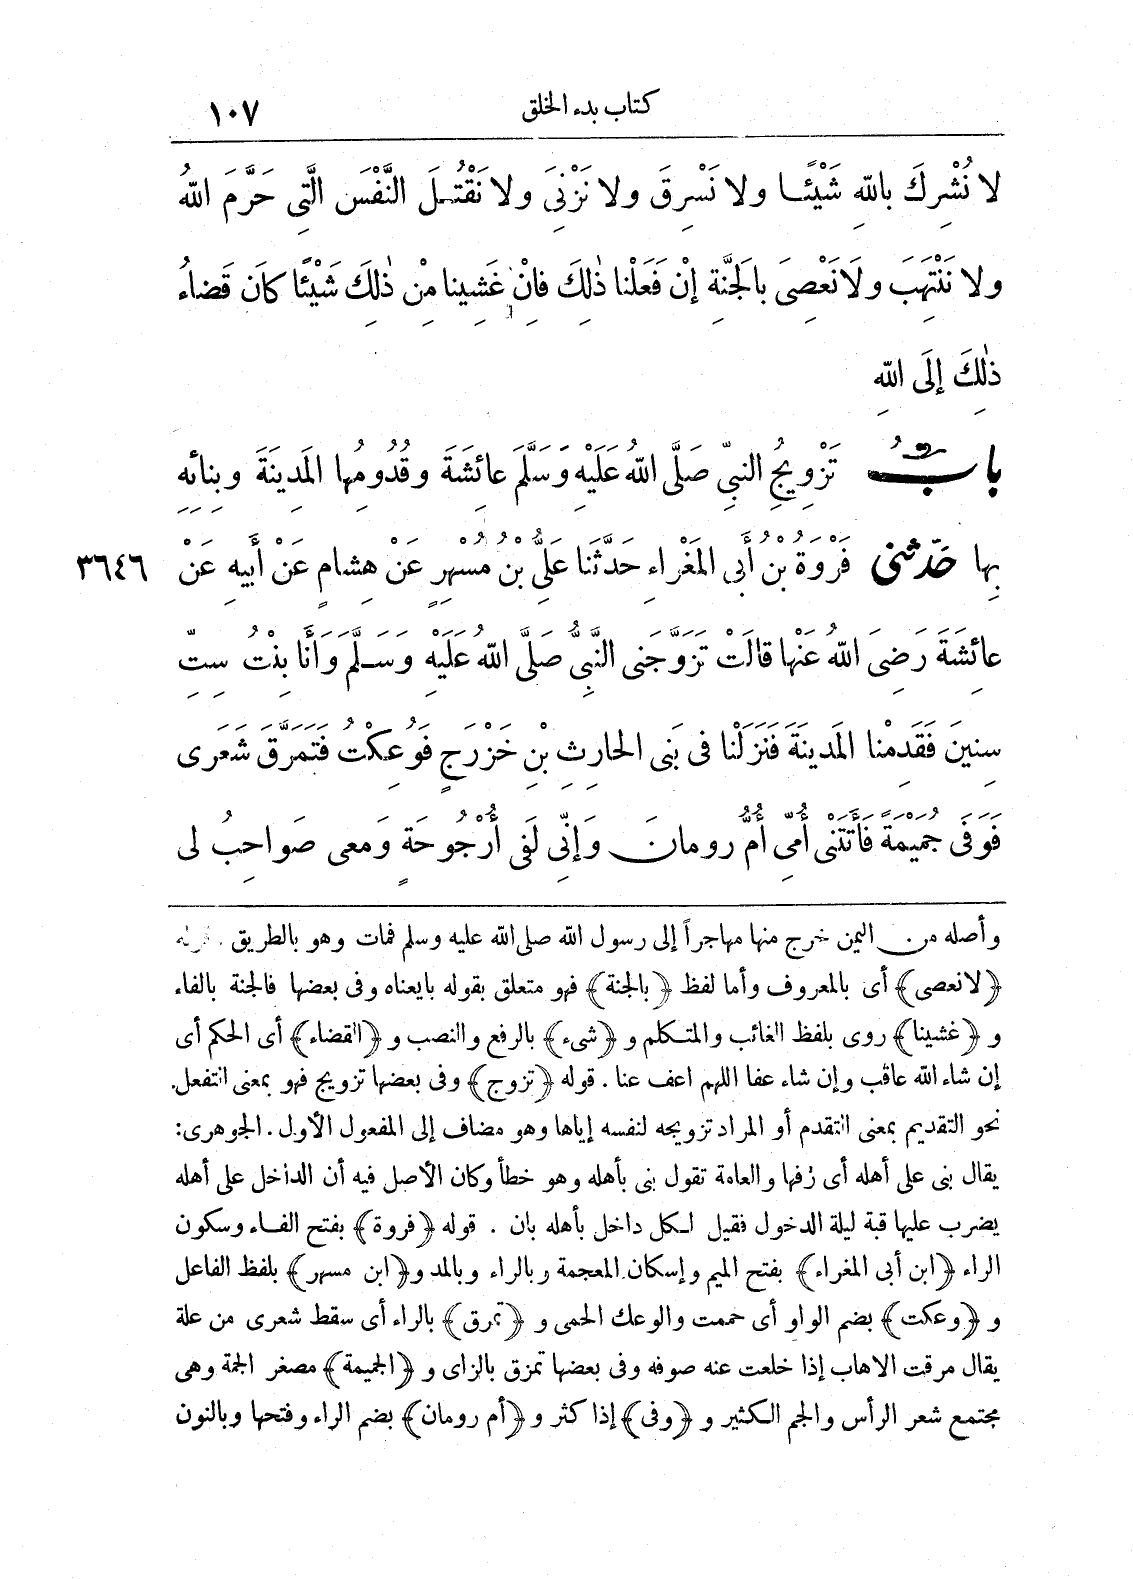 ١٠٧ كتاب بدء الخلق
لا نُشْرِكَ بِاللهِ شَيْئًا ولا نَسْرِقَ ولا نَزْنِىَ ولا نَقْتُلَ النَّفْسَ الَّتِى حَرَّمَ اللهُ
ولا نَنْتَهِبَ ولَا نَعْصِىَ بِالجَنَّةِ إنْ فَعَلْنا ذٰلِكَ فإنْ غَشِينا مِنْ ذٰلِكَ شَيْئًا كانَ قَضاءُ
ذٰلِكَ إلَى اللهِ
بابُ تَزْوِيجِ النبىِّ صَلَّى اللهُ عَلَيْهِ وَسَلَّمَ عائِشَةَ وقُدُومُها المَدِينَةَ وبِنائِهِ
٣٦٤٦ بِها حَدّثنى فَرْوَةُ بْنُ أَبِى المَغْراءِ حَدَّثَنا عَلِىُّ بْنُ مُسْهِرٍ عَنْ هِشامٍ عَنْ أَبِيهِ عَنْ
عائِشَةَ رَضِىَ اللهُ عَنْها قالَتْ تَزَوَّجَنِى النَّبِىُّ صَلَّى اللهُ عَلَيْهِ وَسَلَّمَ وَأَنا بِنْتُ سِتِّ
سِنِينَ فَقَدِمْنا المَدِينَةَ فَنَزَلْنا فى بَنِى الحارِثِ بْنِ خَزْرَجٍ فَوُعِكْتُ فَتَمَرَّقَ شَعَرِى
فَوَفَى جُمَيْمَةً فَأَتَتْنِى أُمِّى أُمُّ رومانَ وَإنِّى لَفِى أُرْجُوحَةٍ وَمَعِى صَواحِبُ لى
وأصله من اليمن خرج منها مهاجراً إلى رسول الله صلى الله عليه وسلم فمات وهو بالطريق . قوله
﴿لا نعصى﴾ أى بالمعروف وأما لفظ ﴿بالجنة﴾ فهو متعلق بقوله بايعناه وفى بعضها فالجنة بالفاء
و ﴿غشينا﴾ روى بلفظ الغائب والمتكلم و ﴿شىء﴾ بالرفع والنصب و ﴿القضاء﴾ أى الحكم أى
إن شاء الله عاقب وإن شاء عفا اللهم اعف عنا . قوله ﴿تزوج﴾ وفى بعضها تزويج فهو بمعنى التفعل.
نحو التقديم بمعنى التقدم أو المراد تزويجه لنفسه إياها وهو مضاف إلى المفعول الأول . الجوهرى:
يقال بنى على أهله أى زفها والعامة تقول بنى بأهله وهو خطأ وكان الأصل فيه أن الداخل على أهله
يضرب عليها قبة ليلة الدخول فقيل لكل داخل بأهله بان . قوله ﴿فروة﴾ بفتح الفاء وسكون
الراء ﴿ابن أبى المغراء﴾ بفتح الميم وإسكان المعجمة وبالراء وبالمد و﴿ابن مسهر﴾ بلفظ الفاعل
و ﴿وعكت﴾ بضم الواو أى حممت والوعك الحمى و ﴿تمرق﴾ بالراء أى سقط شعرى من علة
يقال مرقت الاهاب إذا خلعت عنه صوفه وفى بعضها تمزق بالزاى و ﴿الجميمة﴾ مصغر الجمة وهى
مجتمع شعر الرأس والجم الكثير و ﴿وفى﴾ إذا كثر و ﴿أم رومان﴾ بضم الراء وفتحها وبالنون